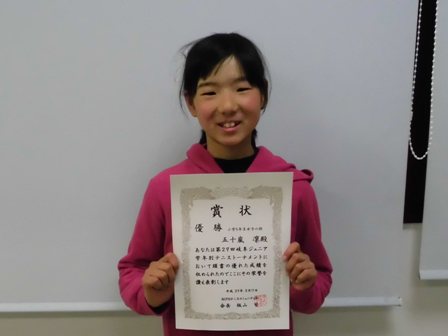 賞状
優勝 小学5年生女子の部
五十嵐 凜殿
あなたは第29回岐阜ジュニア
学年別テニストーナメントに
おいて頭書の優れた成績を
収められたのでここにその栄誉を
讃え表彰します
平成29年2月12日
会長